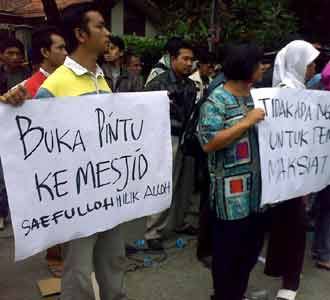 BUKA PINTU
KE MESJID
SAEFULLOH MILIK ALLOH
TIDAK ADA
UNTUK
MAKSIAT